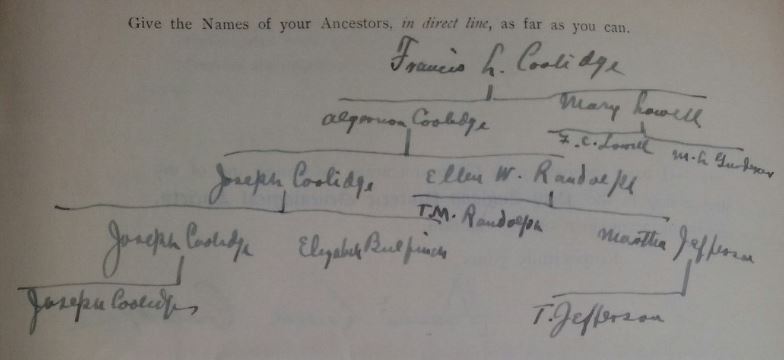 Give the Names of your Ancestors, in direct line, as far as you can.
Francis L. Coolidge
Algernon Coolidge Mary Lowell
F. C. Lowell M. L. Gardner
Joseph Coolidge Ellen W. Randolph
T.M. Randolph Martha Jefferson
Joseph Coolidge Elizabeth Bulfinch
Joseph Coolidge T. Jefferson